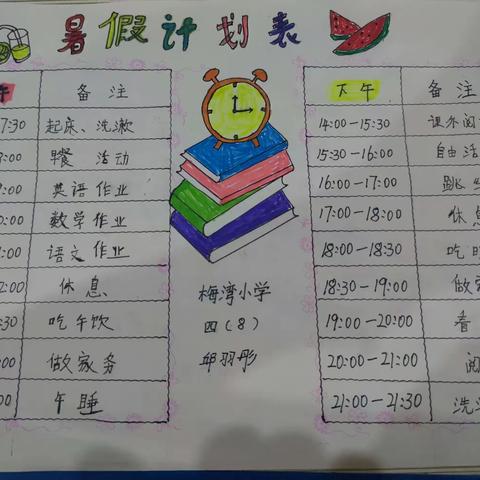 暑假计划表
午 备注
7:30 起床、洗漱
:00 早餐 活动
:00 英语作业
:00 数学作业
:00 语文作业
:00 休息
:30 吃午饮
:00 做家务
:00 午睡
梅湾小学
四(8)
邱羽彤
下午 备注
14:00-15:30 课外阅
15:30-16:00 自由活
16:00-17:00 跳
17:00-18:00 休息
18:00-18:30 吃
18:30-19:00 做
19:00-20:00 看
20:00-21:00 阅
21:00-21:30 洗